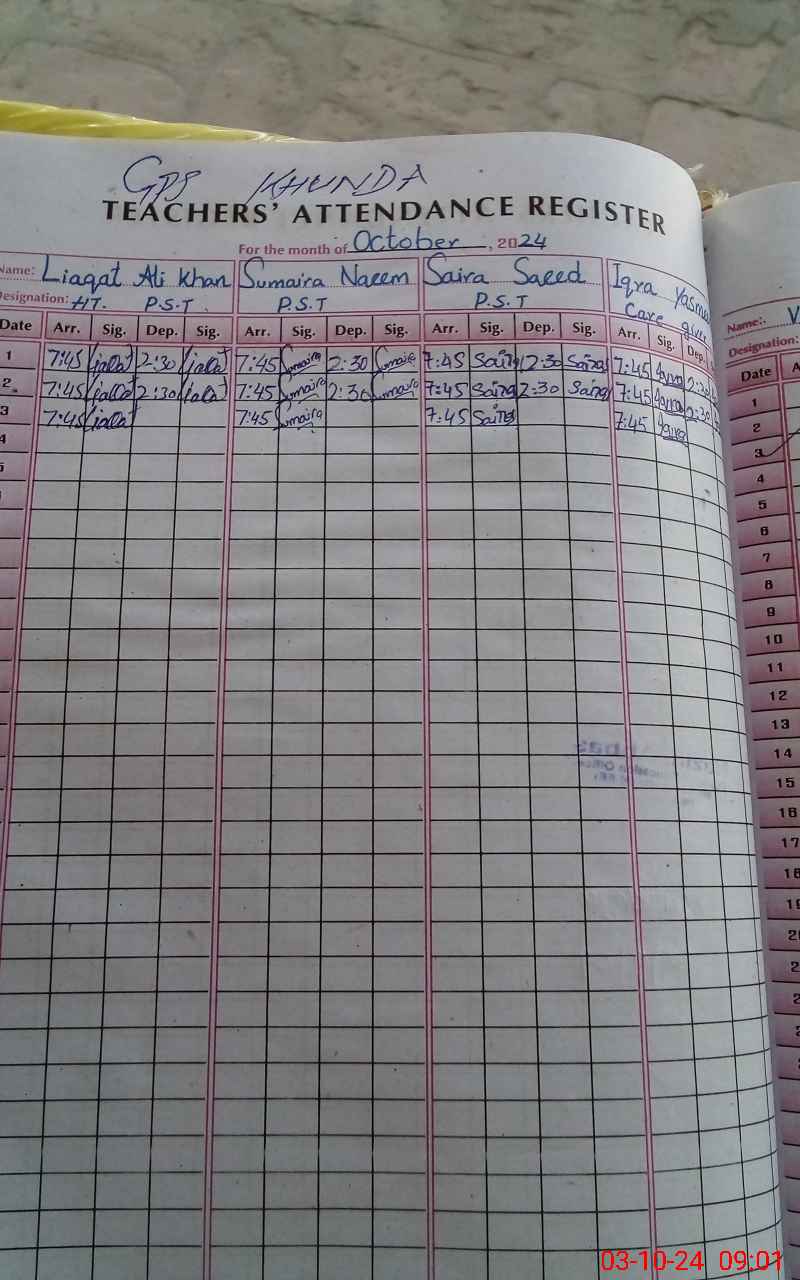 GPS KHUNDA
TEACHERS' ATTENDANCE REGISTER
For the month of October, 2024
Name: Liaqat Ali Khan Sumaira Naeem Saira Saeed Iqra
Designation: HT. P.S.T. P.S.T P.S.T Care giver
Date Arr. Sig. Dep. Sig. Arr. Sig. Dep. Sig. Arr. Sig. Dep. Sig. Arr. Sig. Dep.
1 7:45 2:30 7:45 Sumaira 2:30 Sumaira 7:45 Saira 2:30 Saira 7:45 2:30
2 7:45 2:30 7:45 Sumaira 2:30 Sumaira 7:45 Saira 2:30 Saira 7:45 2:30
3 7:45 7:45 Sumaira 7:45 Saira 7:45
4
5
Name:.
Designation:
Date
1
2
3
4
5
6
7
8
9
10
11
12
13
14
15
16
17
18
03-10-24 09:01